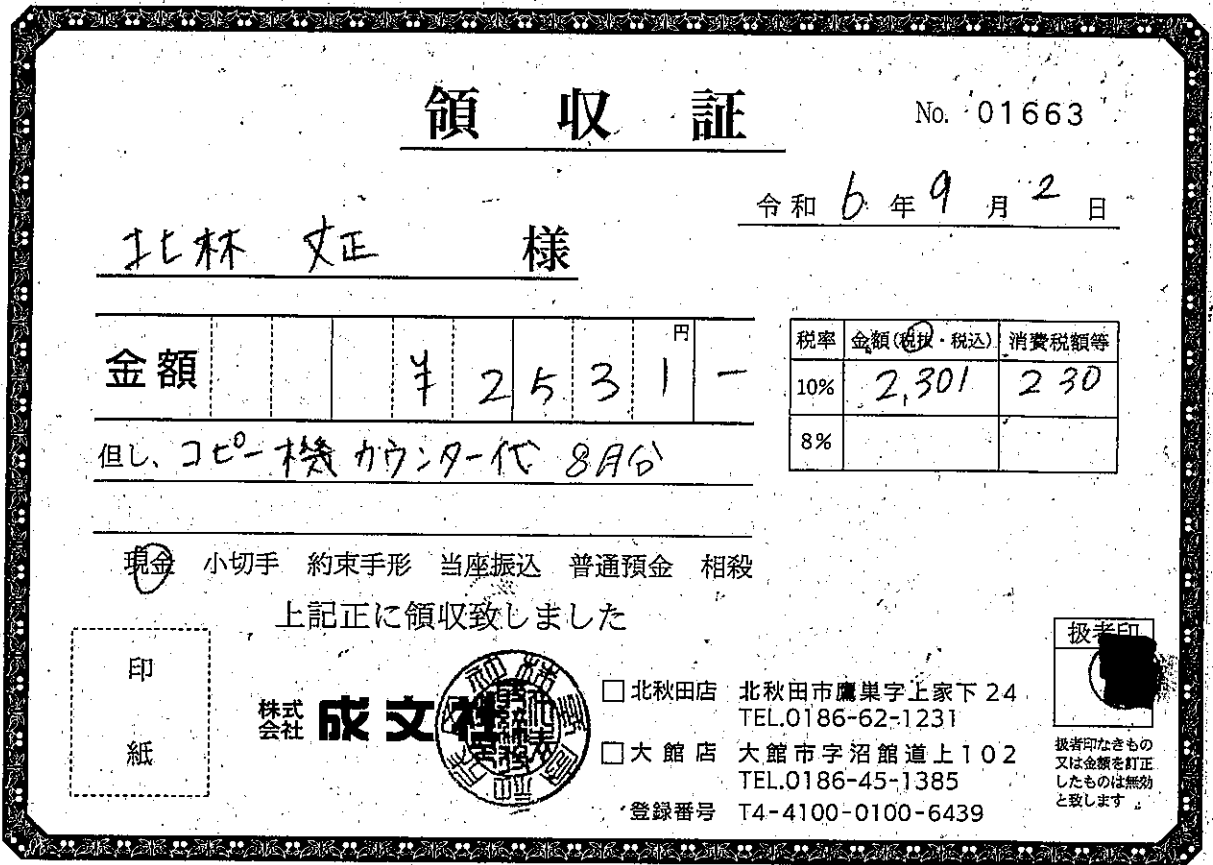 領収証
No. 01663
令和 6 年 9 月 2 日
北林 丈正 様
金額 ¥2531円-
税率 金額(税抜・税込) 消費税額等
10% 2,301 230
8%
但し、コピー機カウンター代 8月分
現金 小切手 約束手形 当座振込 普通預金 相殺
上記正に領収致しました
印
紙
株式会社 成文社
□北秋田店 北秋田市鷹巣字上家下24
TEL.0186-62-1231
□大館店 大館市字沼館道上102
TEL.0186-45-1385
登録番号 T4-4100-0100-6439
扱者印
扱者印なきもの
又は金額を訂正
したものは無効
と致します